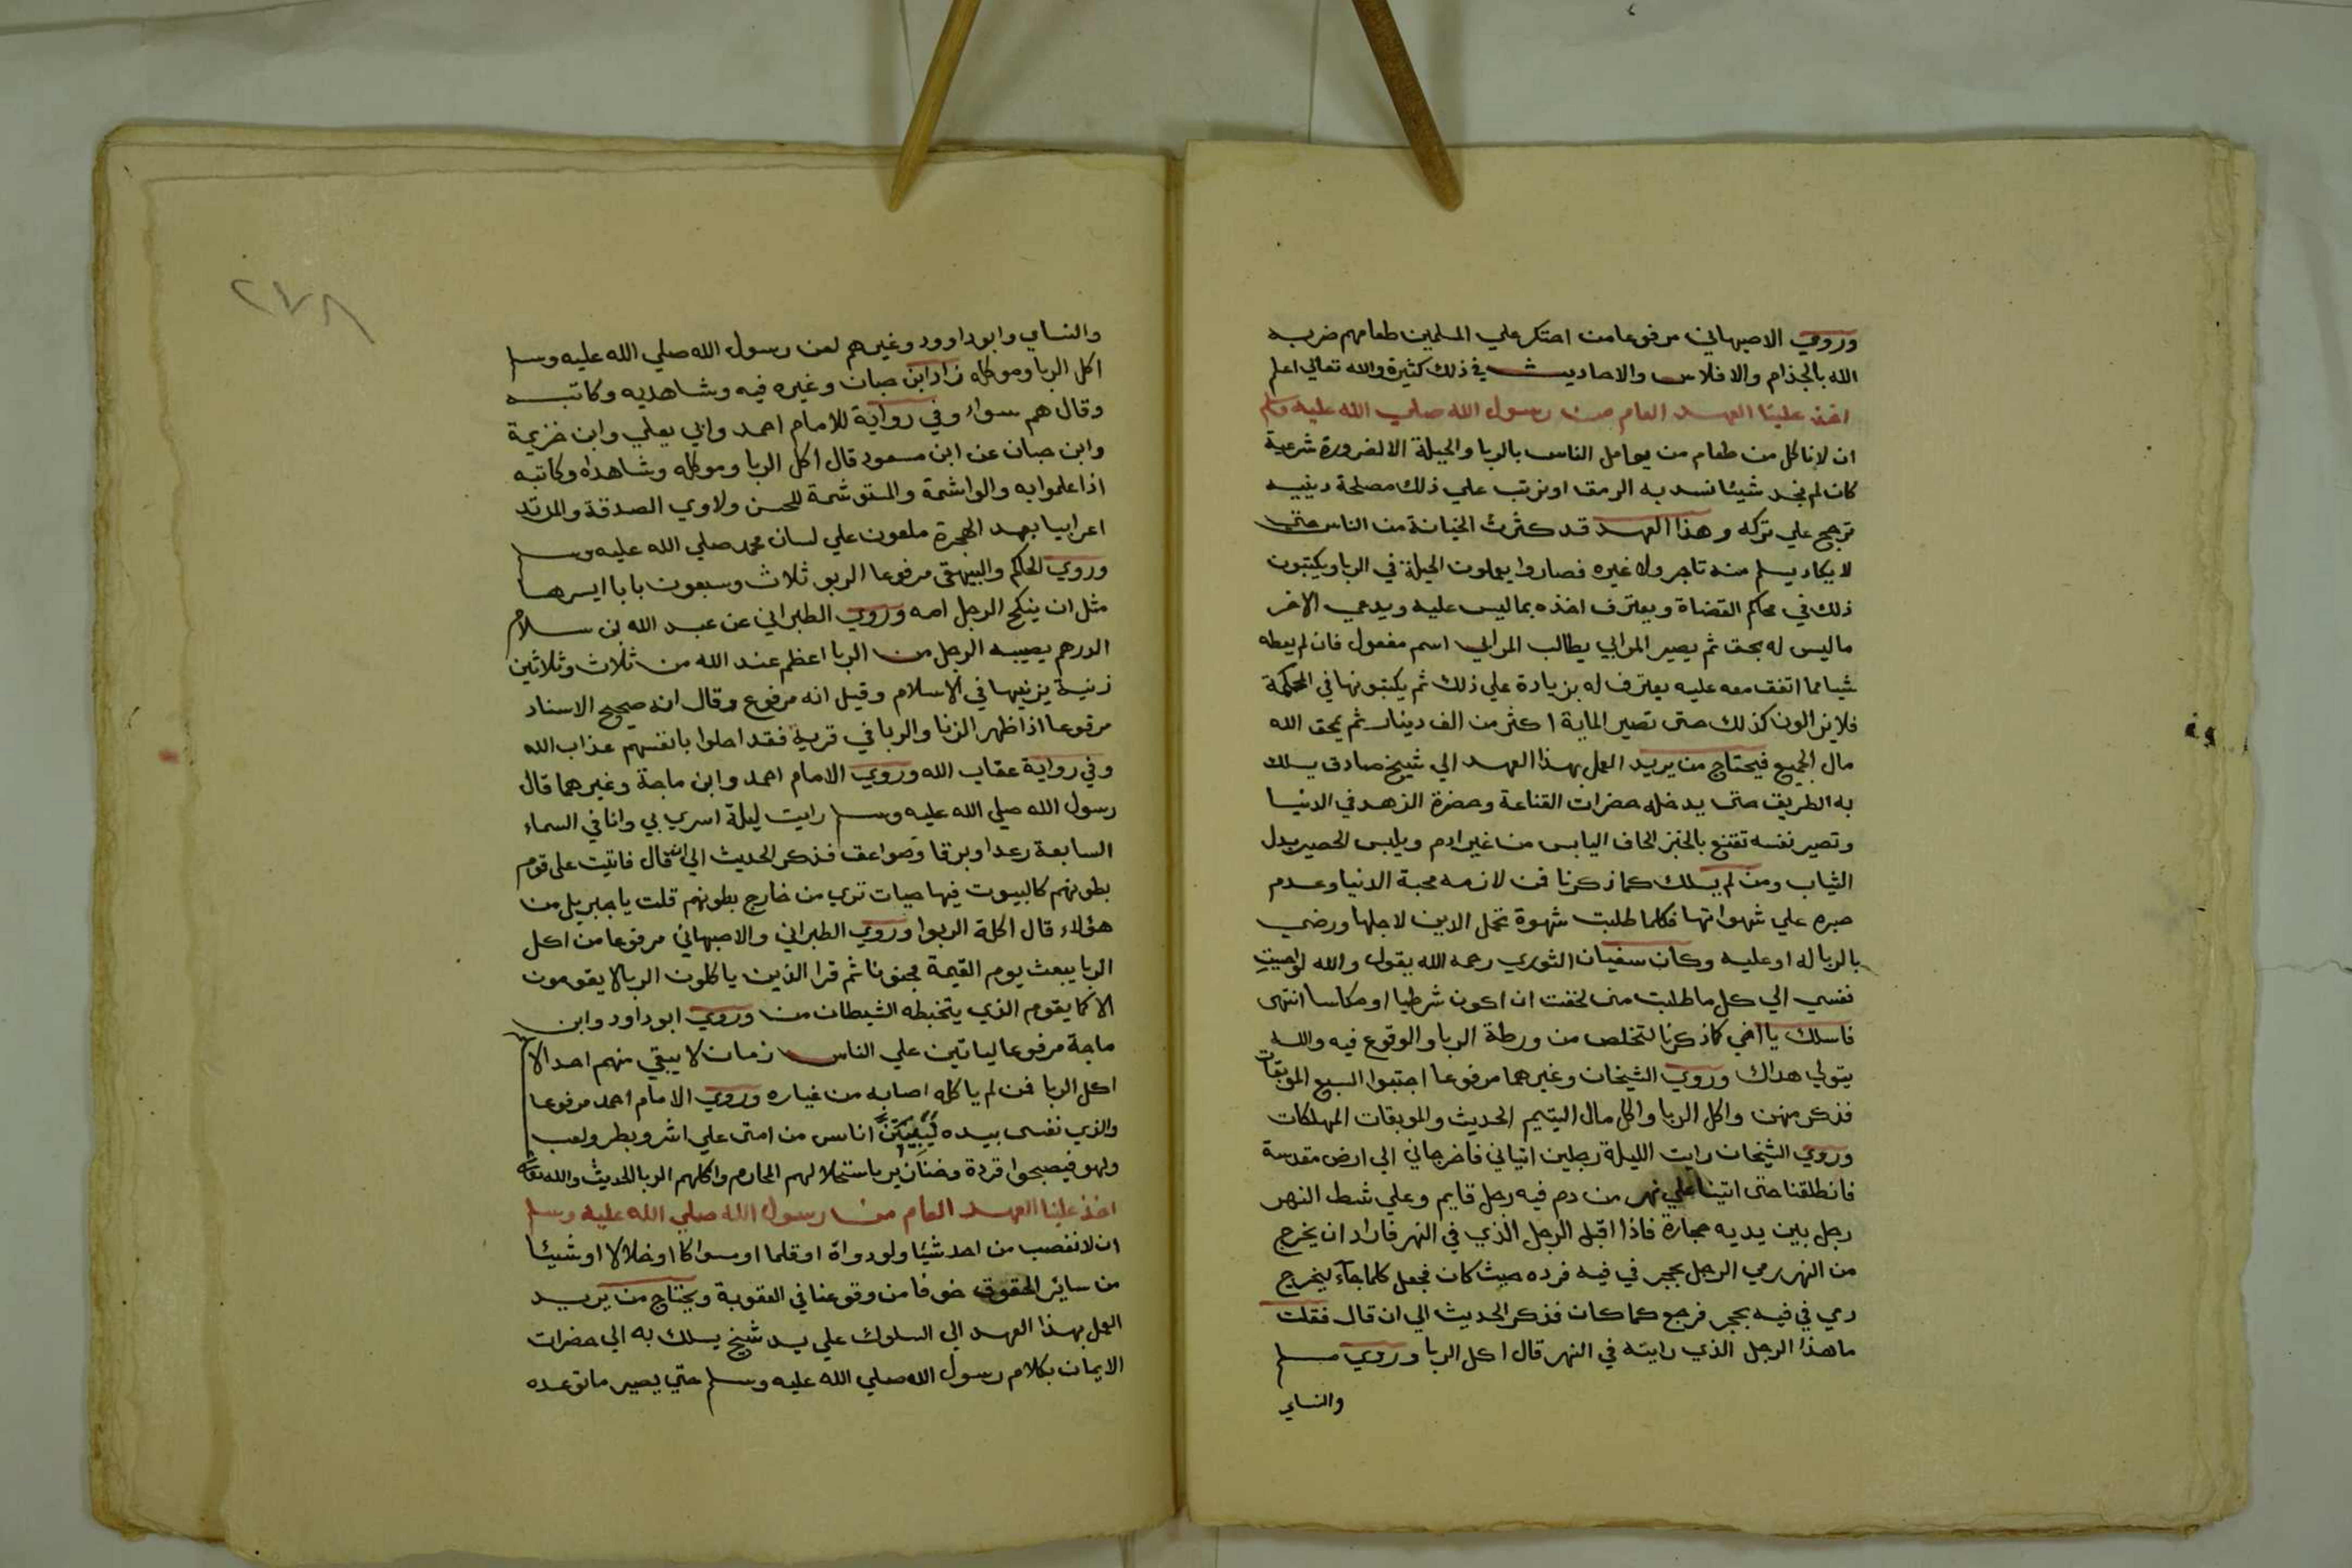 وروي الاصبهاني مرفوعا من احتكر علي المسلمين طعامهم ضربه
الله بالجذام والافلاس والاحاديث في ذلك كثيرة والله تعالي اعلم
اخذ علينا العهد العام من رسول الله صلي الله عليه وسلم
ان لا ناكل من طعام من يعامل الناس بالربا والحيلة الا لضرورة شرعية
كان لم نجد شيئا نسد به الرمق او نرتب علي ذلك مصلحة دينيه
ترجح علي تركه وهذا العهد قد كثرت الخيانة من الناس حتي
لا يكاد يسلم منه تاجر ولا غيره فصاروا يعملون الحيلة في الربا ويكتبون
ذلك في محاكم القضاة ويعترف اخذه بما ليس عليه ويدعي الاخر
ما ليس له بحق ثم يصير المرابي يطالب المرابي اسم مفعول فان لم يعطه
شيا مما اتفق معه عليه يعترف له بزيادة علي ذلك ثم يكتبونها في المحكمة
فلا يزالون كذلك حتى تصير الماية اكثر من الف دينار ثم يمحق الله
مال الجميع فيحتاج من يريد العمل بهذا العهد الي شيخ صادق يسلك
به الطريق حتى يدخله حضرات القناعة وحضرة الزهد في الدنيا
وتصير نفسه تقتنع بالخبز الحاف اليابس من غير ادم ويلبس الحصير بدل
الثياب ومن لم يسلك كما ذكرنا فمن لازمه محبة الدنيا وعدم
صبره علي شهواتها فكلما طلبت شهوة تحمل الدين لاجلها ورضي
بالربا له او عليه وكان سفيان الثوري رحمه الله يقول والله لو اجبت
نفسي الي كل ما طلبت مني لخفت ان اكون شرطيا او مكاسا انتهى
فاسلك يا اخي كما ذكرنا لتخلص من ورطة الربا والوقوع فيه والله
يتولي هداك وروي الشيخان وغيرهما مرفوعا اجتنبوا السبع الموبقات
فذكر منهن واكل الربا واكل مال اليتيم الحديث والموبقات المهلكات
وروي الشيخان رايت الليلة رجلين اتياني فاخرجاني الي ارض مقدسة
فانطلقنا حتى اتينا علي نهر من دم فيه رجل قايم وعلي شط النهر
رجل بين يديه حجارة فاذا اقبل الرجل الذي في النهر فاراد ان يخرج
من النهر رمي الرجل بحجر في فيه فرده حيث كان فجعل كلما جآء ليخرج
رمي في فيه بحجر فرجع كما كان فذكر الحديث الي ان قال فقلت
ما هذا الرجل الذي رايته في النهر قال اكل الربا وروي مسلم
والنساي
٢٧٨
والنساي وابو داوود وغيرهم لعن رسول الله صلي الله عليه وسلم
اكل الربا وموكله زاد ابن حبان وغيره فيه وشاهديه وكاتبه
وقال هم سواء وفي رواية للامام احمد وابي يعلي وابن خزيمة
وابن حبان عن ابن مسعود قال اكل الربا وموكله وشاهداه وكاتبه
اذا علموا به والواشمة والمستوشمة للحسن ولاوي الصدقة والمرتد
اعرابيا بعد الهجرة ملعون علي لسان محمد صلي الله عليه وسلم
وروي الحاكم والبيهقي مرفوعا الربو ثلاث وسبعون بابا ايسرها
مثل ان ينكح الرجل امه وروي الطبراني عن عبد الله بن سلام
الدرهم يصيبه الرجل من الربا اعظم عند الله من ثلاث وثلاثين
زنية يزنيها في الاسلام وقيل انه مرفوع وقال انه صحيح الاسناد
مرفوعا اذا ظهر الزنا والربا في قرية فقد احلوا بانفسهم عذاب الله
وفي رواية عقاب الله وروي الامام احمد وابن ماجة وغيرهما قال
رسول الله صلي الله عليه وسلم رايت ليلة اسري بي وانا في السماء
السابعة رعدا وبرقا وصواعق فذكر الحديث الي ان قال فاتيت على قوم
بطونهم كالبيوت فيها حيات تري من خارج بطونهم قلت يا جبريل من
هؤلاء قال اكلة الربوا وروي الطبراني والاصبهاني مرفوعا من اكل
الربا يبعث يوم القيمة مجنونا ثم قرا الذين ياكلون الربا لا يقومون
الا كما يقوم الذي يتخبطه الشيطان من وروي ابو داود وابن
ماجة مرفوعا لياتين علي الناس زمان لا يبقي منهم احد الا
اكل الربا فمن لم ياكله اصابه من غباره وروي الامام احمد مرفوعا
والذي نفسى بيده ليبيتن اناس من امتى علي اشر وبطر ولعب
ولهو فيصبحوا قردة وخنازير باستحلالهم المحارم واكلهم الربا الحديث والله تعا
اخذ علينا العهد العام من رسول الله صلي الله عليه وسلم
ان لا نغصب من احد شيئا ولو دواة او قلما او سواكا او خلالا او شيئا
من سائر الحقوق خوفا من وقوعنا في العقوبة ويحتاج من يريد
العمل بهذا العهد الي السلوك علي يد شيخ يسلك به الي حضرات
الايمان بكلام رسول الله صلي الله عليه وسلم حتي يصير ما توعده